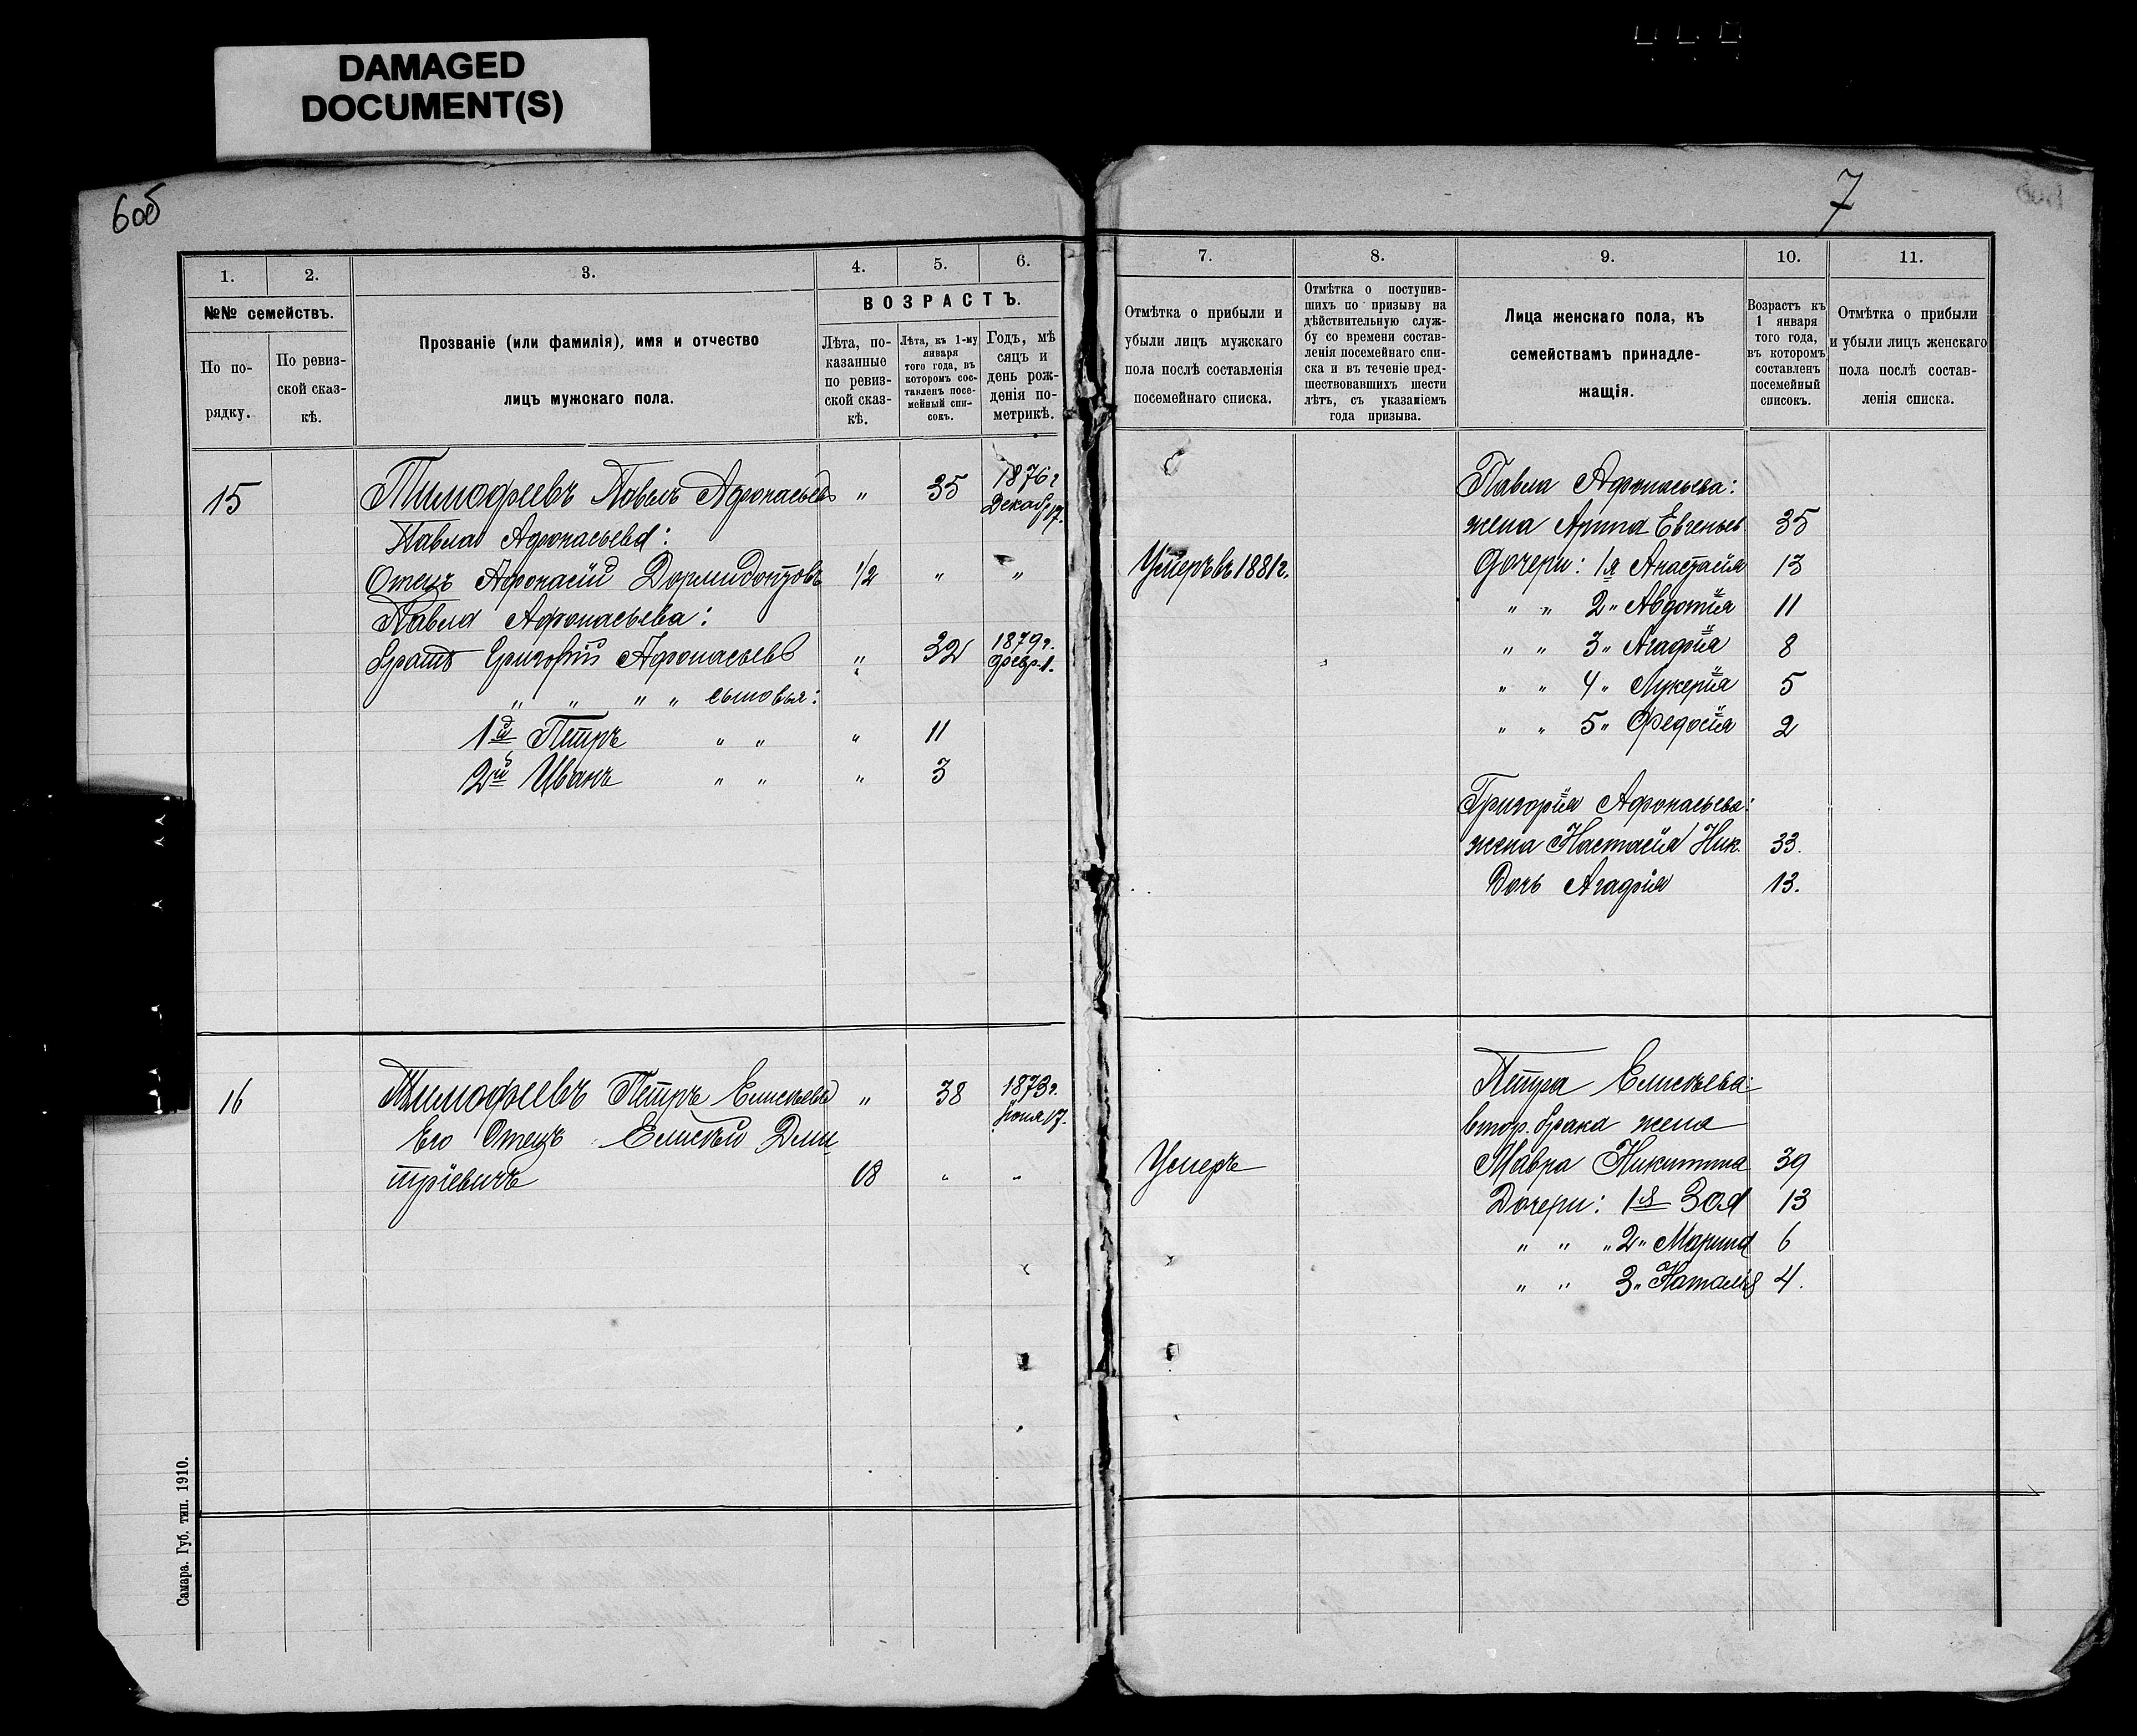 DAMAGED
DOCUMENT(S)
6об
7
1.
2.
3.
4.
5.
6.
№№ семействъ.
По по-
рядку.
По ревиз-
ской сказ-
кѣ.
Прозваніе (или фамилія), имя и отчество
лицъ мужскаго пола.
ВОЗРАСТЪ.
Лѣта, по-
казанные
по ревиз-
ской сказ-
кѣ.
Лѣта, къ 1-му
января
того года, въ
которомъ сос-
тавленъ посе-
мейный спи-
сокъ.
Годъ, мѣ
сяцъ и
день рож-
денія по-
метрикѣ.
15
Тимофеевъ Павелъ Афонасьевъ " 35 1876 г
Декабр 17.
Павла Афонасьева:
Отецъ Афонасій Дормидонтовъ 1/2 " "
Павла Афонасьева:
братъ Григорій Афонасьевъ " 32 1879 г.
февр. 1.
" " " " сыновья:
1й Петръ " " " 11
2й Иванъ " " " 3
16
Тимофеевъ Петръ Елисеевъ " 38 1873 г.
Іюня 17.
Его Отецъ Елисей Дми
тріевичъ 18 " "
Самара. Губ. тип. 1910.
7.
8.
9.
10.
11.
Отмѣтка о прибыли и
убыли лицъ мужскаго
пола послѣ составленія
посемейнаго списка.
Отмѣтка о поступив-
шихъ по призыву на
дѣйствительную служ-
бу со времени состав-
ленія посемейнаго спи-
ска и въ теченіе пред-
шествовавшихъ шести
лѣтъ, съ указаніемъ
года призыва.
Лица женскаго пола, къ
семействамъ принадле-
жащія.
Возрастъ къ
1 января
того года,
въ которомъ
составленъ
посемейный
списокъ.
Отмѣтка о прибыли
и убыли лицъ женскаго
пола послѣ состав-
ленія списка.
Павла Афонасьева:
жена Арина Евгеньев 35
Умеръ въ 1881 г.
дочери: 1я Анастасія 13
" " 2" Авдотія 11
" " 3" Агафія 8
" " 4" Лукерія 5
" " 5" Федосія 2
Григорія Афонасьева:
жена Настасія Ник. 33.
Дочь Агафія 13.
Петра Елисеева:
втор. брака жена
Умеръ
Мавра Никитина 39
Дочери: 1я Зоя 13
" " " 2" Марина 6
" " 3" Наталія 4.